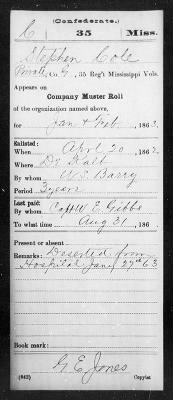 (Confederate.)
C 35 Miss.
Stephen Cole
Private, Co. G, 35 Reg't Mississippi Vols.
Appears on
Company Muster Roll
of the organization named above,
for Jan & Feb., 1863.
Enlisted:
When April 20, 1862.
Where De Kalb
By whom W. S. Barry
Period 3 years
Last paid:
By whom Capt W. E. Gibbs
To what time Aug 31, 186
Present or absent
Remarks: Deserted from
Hospital Jany 27th 63
Book mark:
G. E. Jones
(642) Copyist.